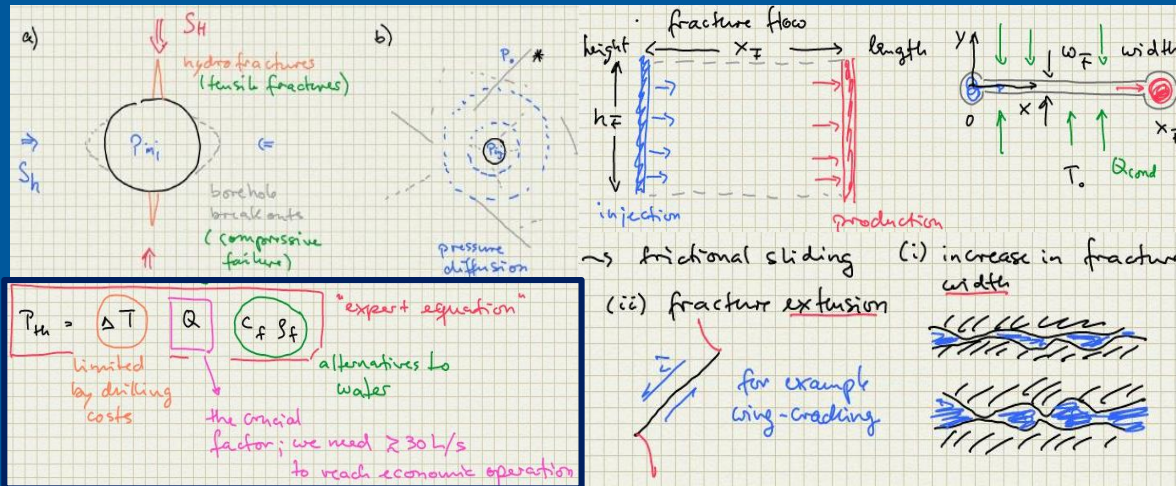 a)
S_H
hydrofractures
(tensile fractures)
P_inj
S_h
borehole
breakouts
(compressive
failure)
b)
P_o *
P_inj
pressure
diffusion
P_th = ΔT Q c_f ρ_f "expert equation"
limited
by drilling
costs
alternatives to
water
the crucial
factor; we need ≥ 30 L/s
to reach economic operation
fracture flow
height x_F length
h_F
injection
production
y w_F width
0 x x_F
T_o Q_cond
~> frictional sliding (i) increase in fracture
width
(ii) fracture extension
τ
for example
wing-cracking